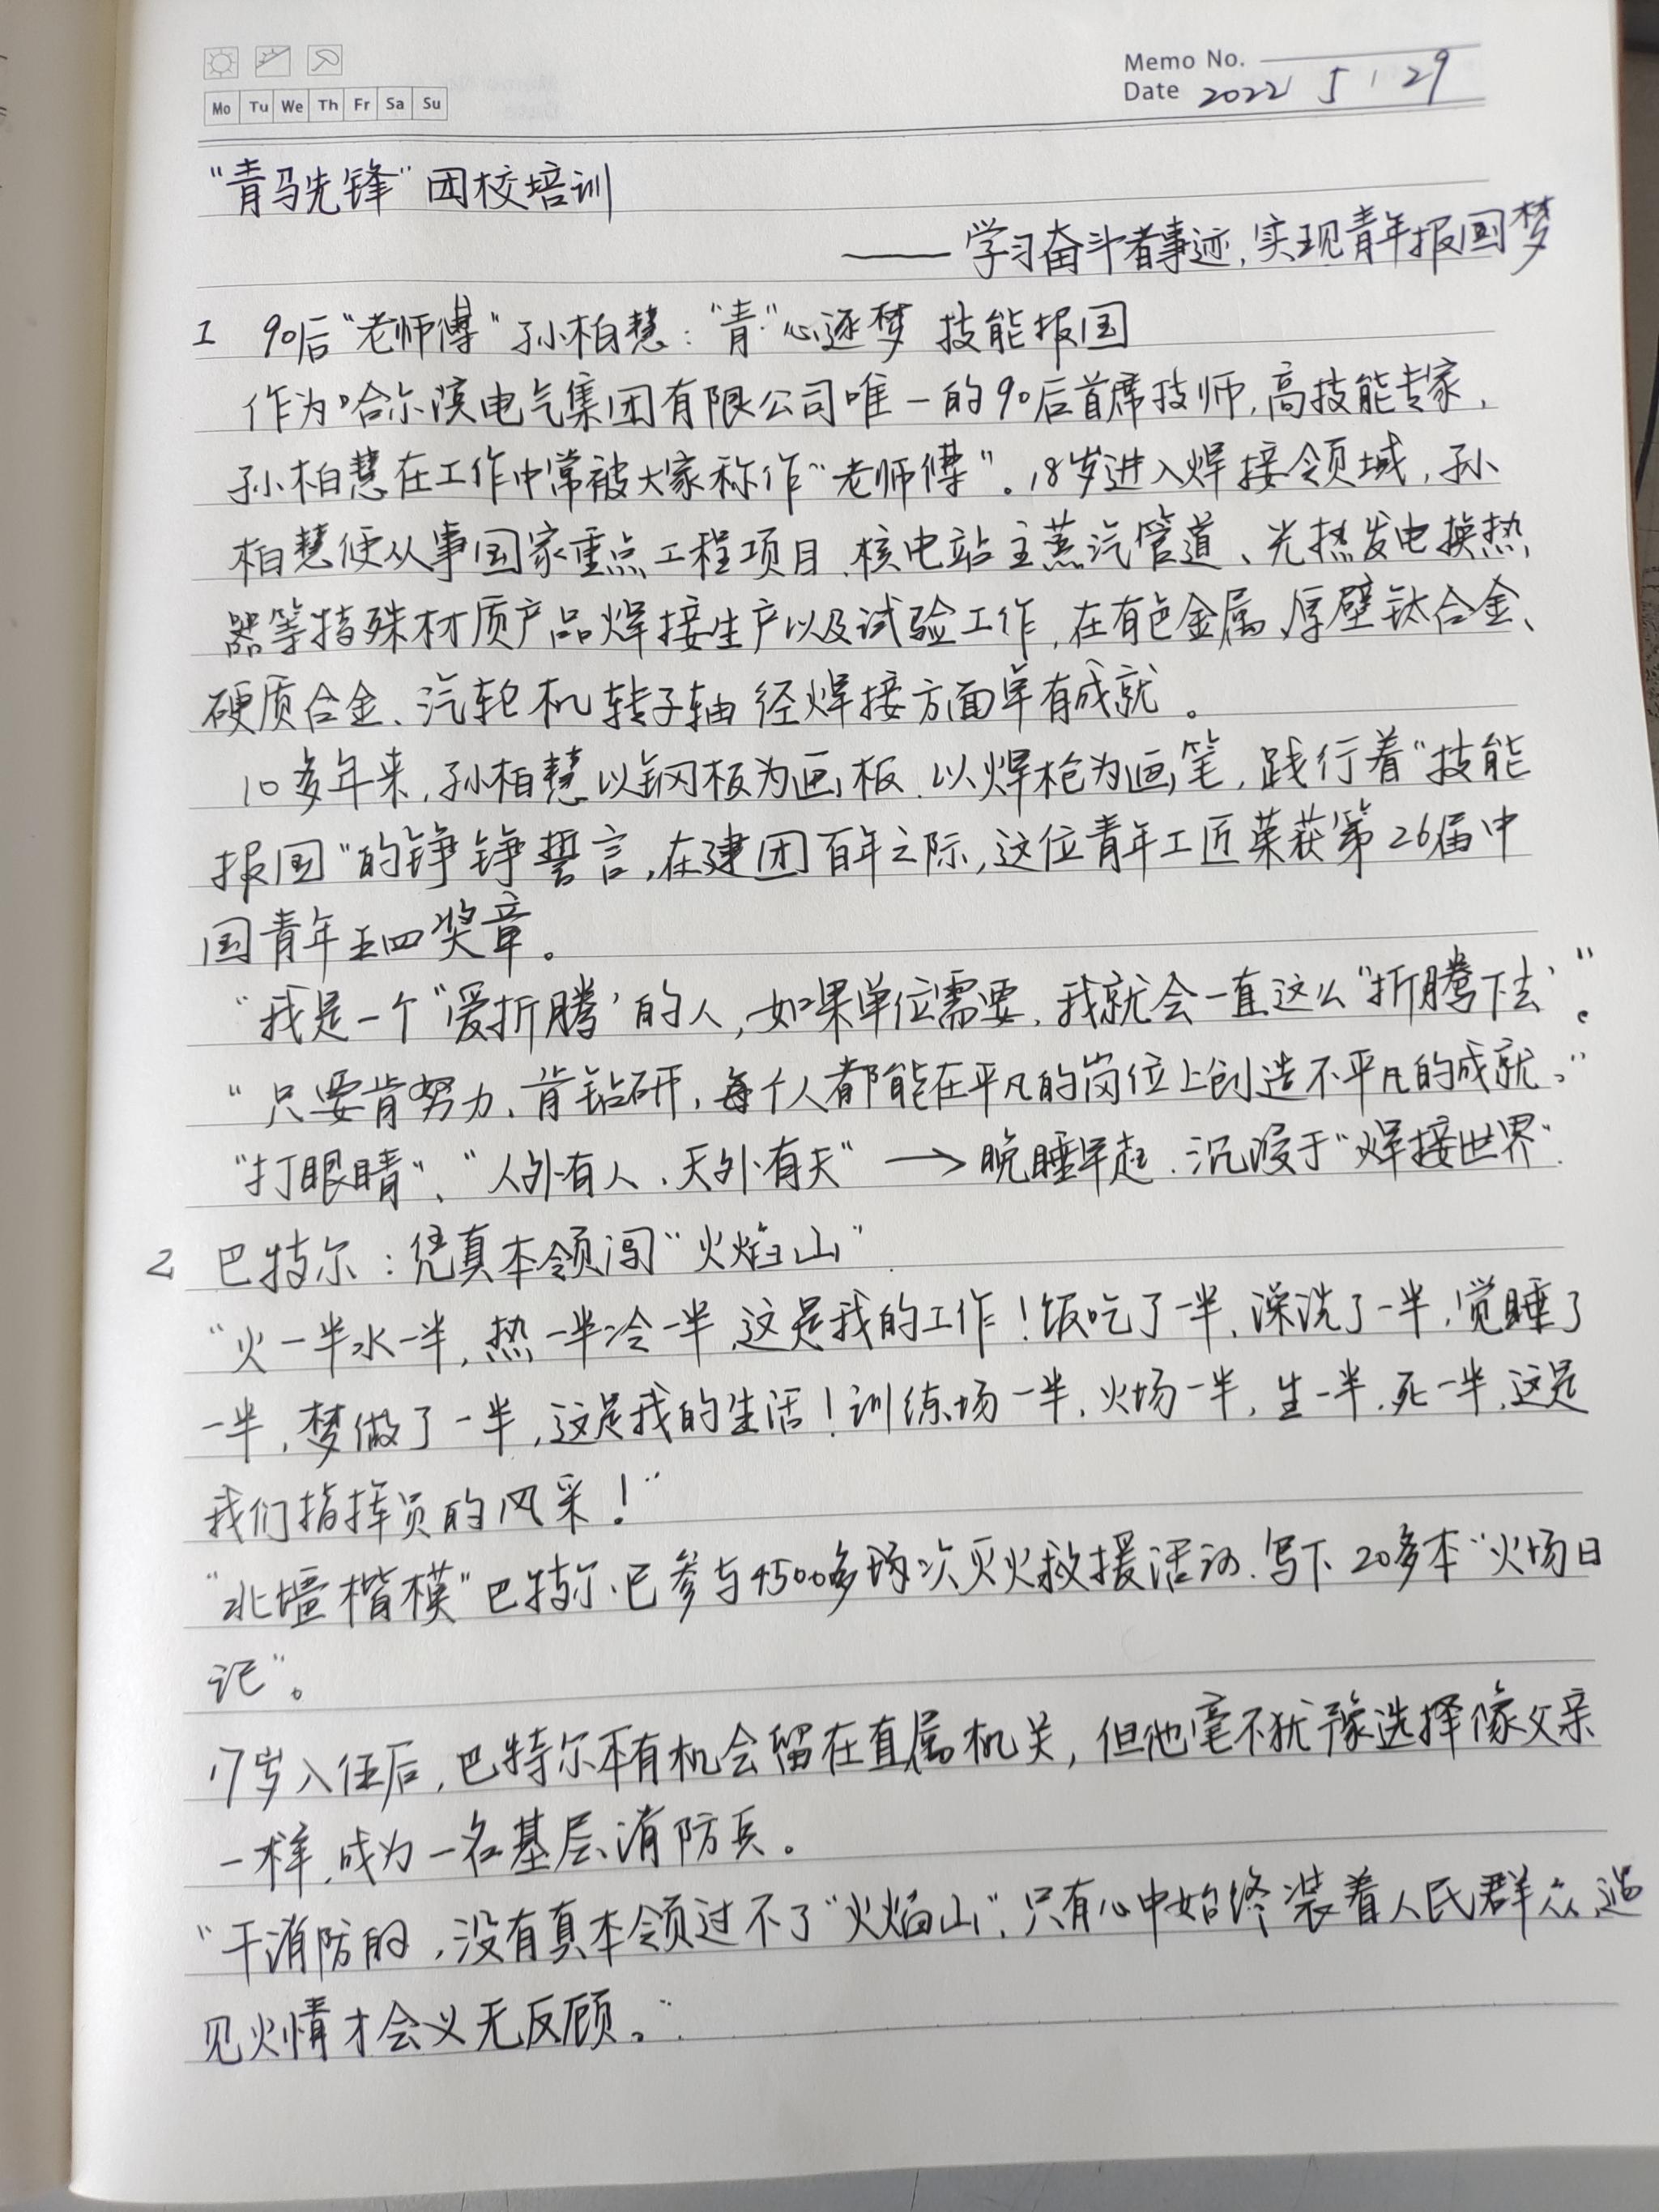 Memo No.
Date 2022 5 29
Mo Tu We Th Fr Sa Su
“青马先锋”团校培训
——学习奋斗者事迹,实现青年报国梦
1 90后“老师傅”孙柏慧:“青”心逐梦 技能报国
作为哈尔滨电气集团有限公司唯一的90后首席技师,高技能专家,
孙柏慧在工作中常被大家称作“老师傅”。18岁进入焊接领域,孙
柏慧便从事国家重点工程项目、核电站主蒸汽管道、光热发电换热
器等特殊材质产品焊接生产以及试验工作,在有色金属、厚壁钛合金、
硬质合金、汽轮机转子轴径焊接方面卓有成就。
10多年来,孙柏慧以钢板为画板、以焊枪为画笔,践行着“技能
报国”的铮铮誓言,在建团百年之际,这位青年工匠荣获第26届中
国青年五四奖章。
“我是一个“爱折腾’的人,如果单位需要,我就会一直这么“折腾下去’”。
“只要肯努力、肯钻研,每个人都能在平凡的岗位上创造不平凡的成就。”
“打眼睛”、“人外有人、天外有天”→晚睡早起、沉浸于“焊接世界”
2 巴特尔:凭真本领闯“火焰山”
“火一半水一半,热一半冷一半,这是我的工作!饭吃了一半,澡洗了一半,觉睡了
一半,梦做了一半,这是我的生活!训练场一半,火场一半,生一半,死一半,这是
我们指挥员的风采!”
“北疆楷模”巴特尔已参与4500多场次灭火救援活动、写下20多本“火场日
记”。
17岁入伍后,巴特尔本有机会留在直属机关,但他毫不犹豫选择像父亲
一样,成为一名基层消防兵。
“干消防的,没有真本领过不了“火焰山”,只有心中始终装着人民群众,遇
见火情才会义无反顾。”